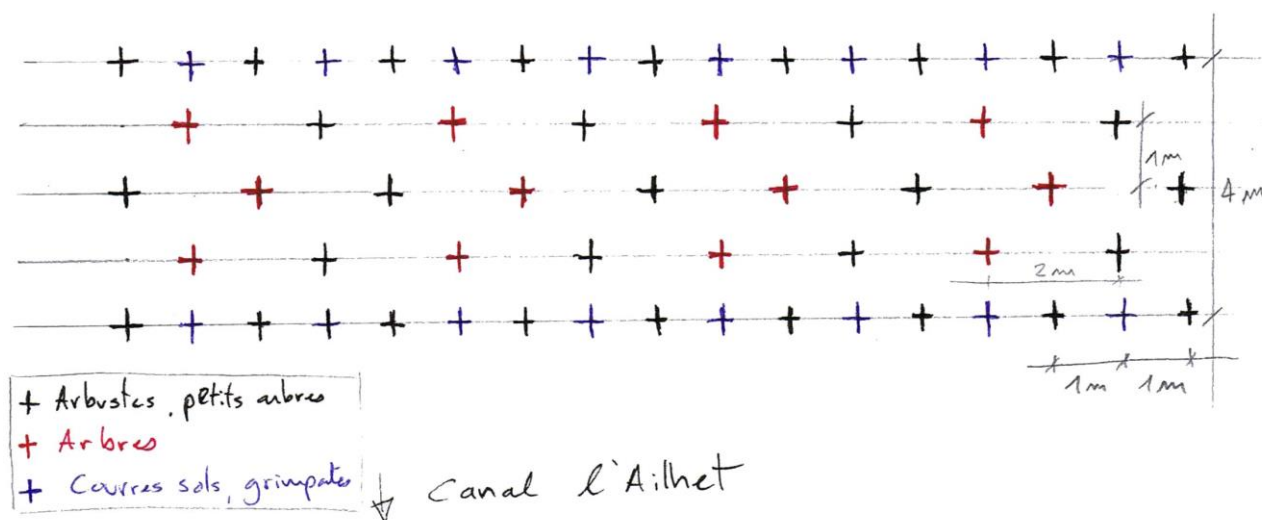 1m
4m
2m
1m 1m
+ Arbustes, petits arbres
+ Arbres
+ Couvres sols, grimpates
↓ Canal l'Ailhet